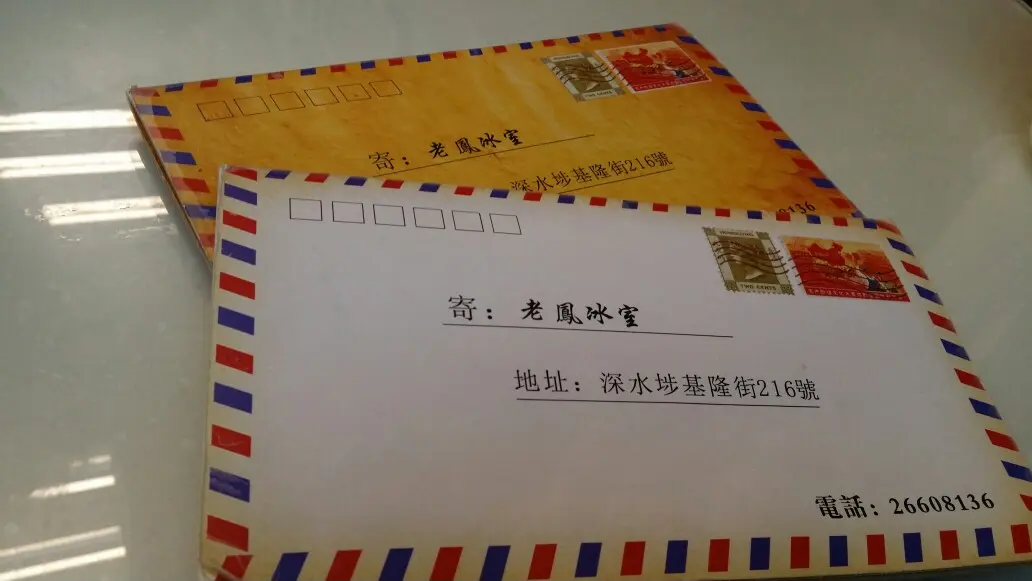 寄：老鳳冰室
深水埗基隆街216號
8136
TWO CENTS
寄：老鳳冰室
地址：深水埗基隆街216號
電話：26608136
TWO CENTS